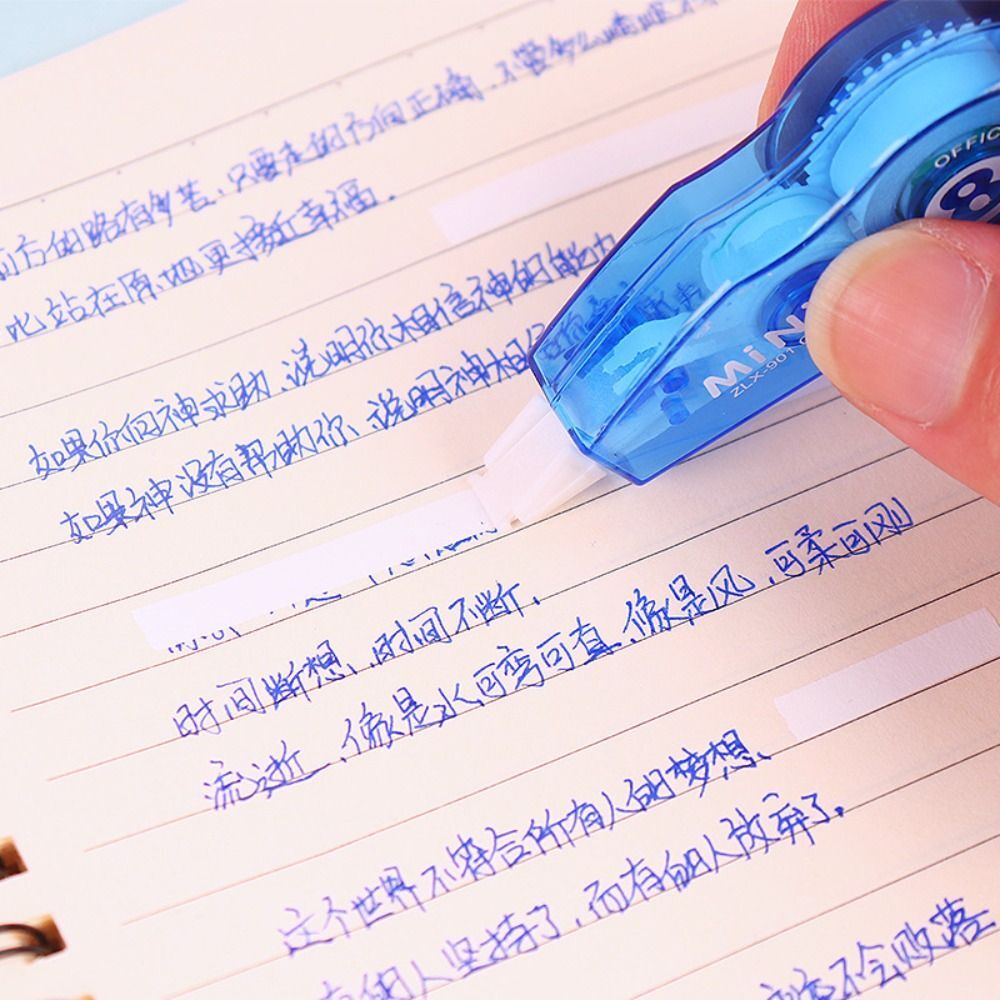 前方的路有多苦、只要走的方向正确.不管多么崎岖不
比站在原地更接近幸福.
如果你向神求助.说明你相信神的能力
如果神没有帮助你、说明神相信
时间断想、时间不断.
流逝、像是水可弯可直.像是风.可柔可刚
这个世界不符合所有人的梦想、
有的人坚持了.而有的人放弃了.
不会败落.
OFFIC
8
MiNi
ZLX-901